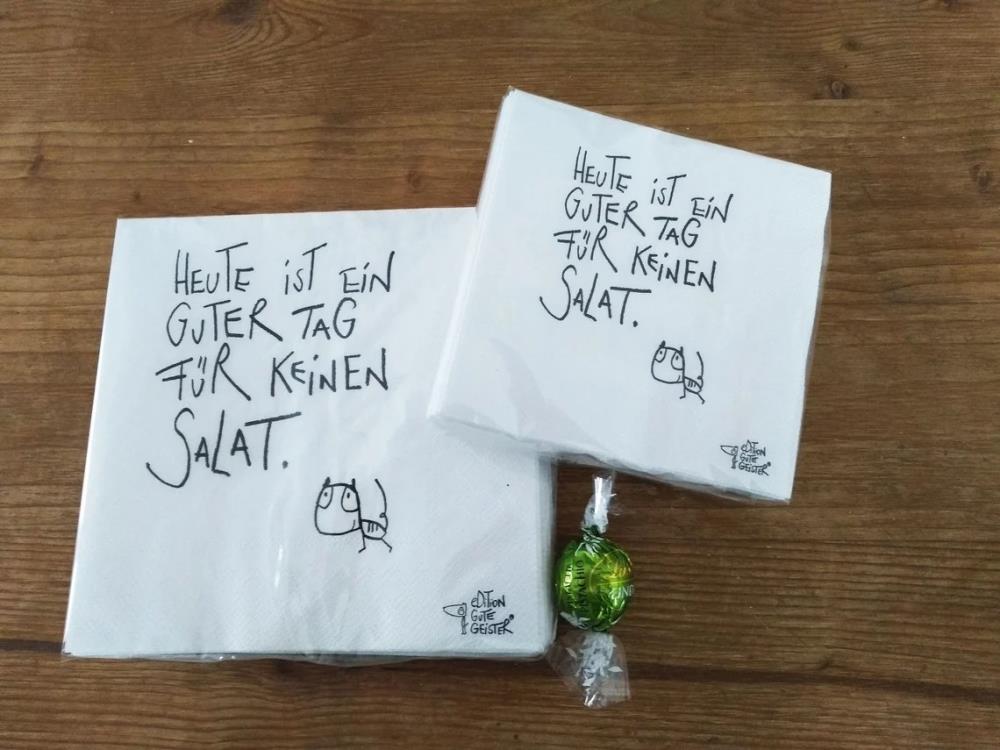 HEUTE iST EiN
GUTER TAG
FÜR KEiNEN
SALAT.
eDiTioN
GUTE
GEiSTER®
HEUTE iST EiN
GUTER TAG
FÜR KEiNEN
SALAT.
eDiTioN
GUTE
GEiSTER®